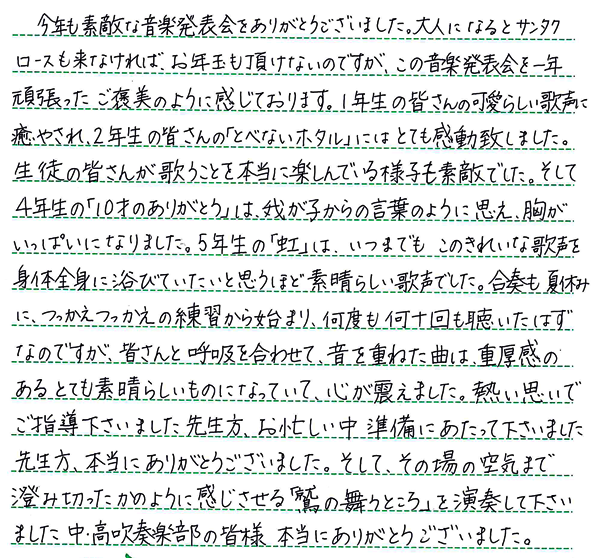 今年も素敵な音楽発表会をありがとうございました。大人になるとサンタク
ロースも来なければ、お年玉も頂けないのですが、この音楽発表会を一年
頑張ったご褒美のように感じております。1年生の皆さんの可愛らしい歌声に
癒やされ、2年生の皆さんの「とべないホタル」にはとても感動致しました。
生徒の皆さんが歌うことを本当に楽しんでいる様子も素敵でした。そして
4年生の「10才のありがとう」は、我が子からの言葉のように思え、胸が
いっぱいになりました。5年生の「虹」は、いつまでもこのきれいな歌声を
身体全身に浴びていたいと思うほど素晴らしい歌声でした。合奏も夏休み
に、つっかえつっかえの練習から始まり、何度も何十回も聴いたはず
なのですが、皆さんと呼吸を合わせて、音を重ねた曲は、重厚感の
あるとても素晴らしいものになっていて、心が震えました。熱い思いで
ご指導下さいました先生方、お忙しい中準備にあたって下さいました
先生方、本当にありがとうございました。そして、その場の空気まで
澄み切ったかのように感じさせる「鷲の舞うところ」を演奏して下さい
ました中・高吹奏楽部の皆様本当にありがとうございました。